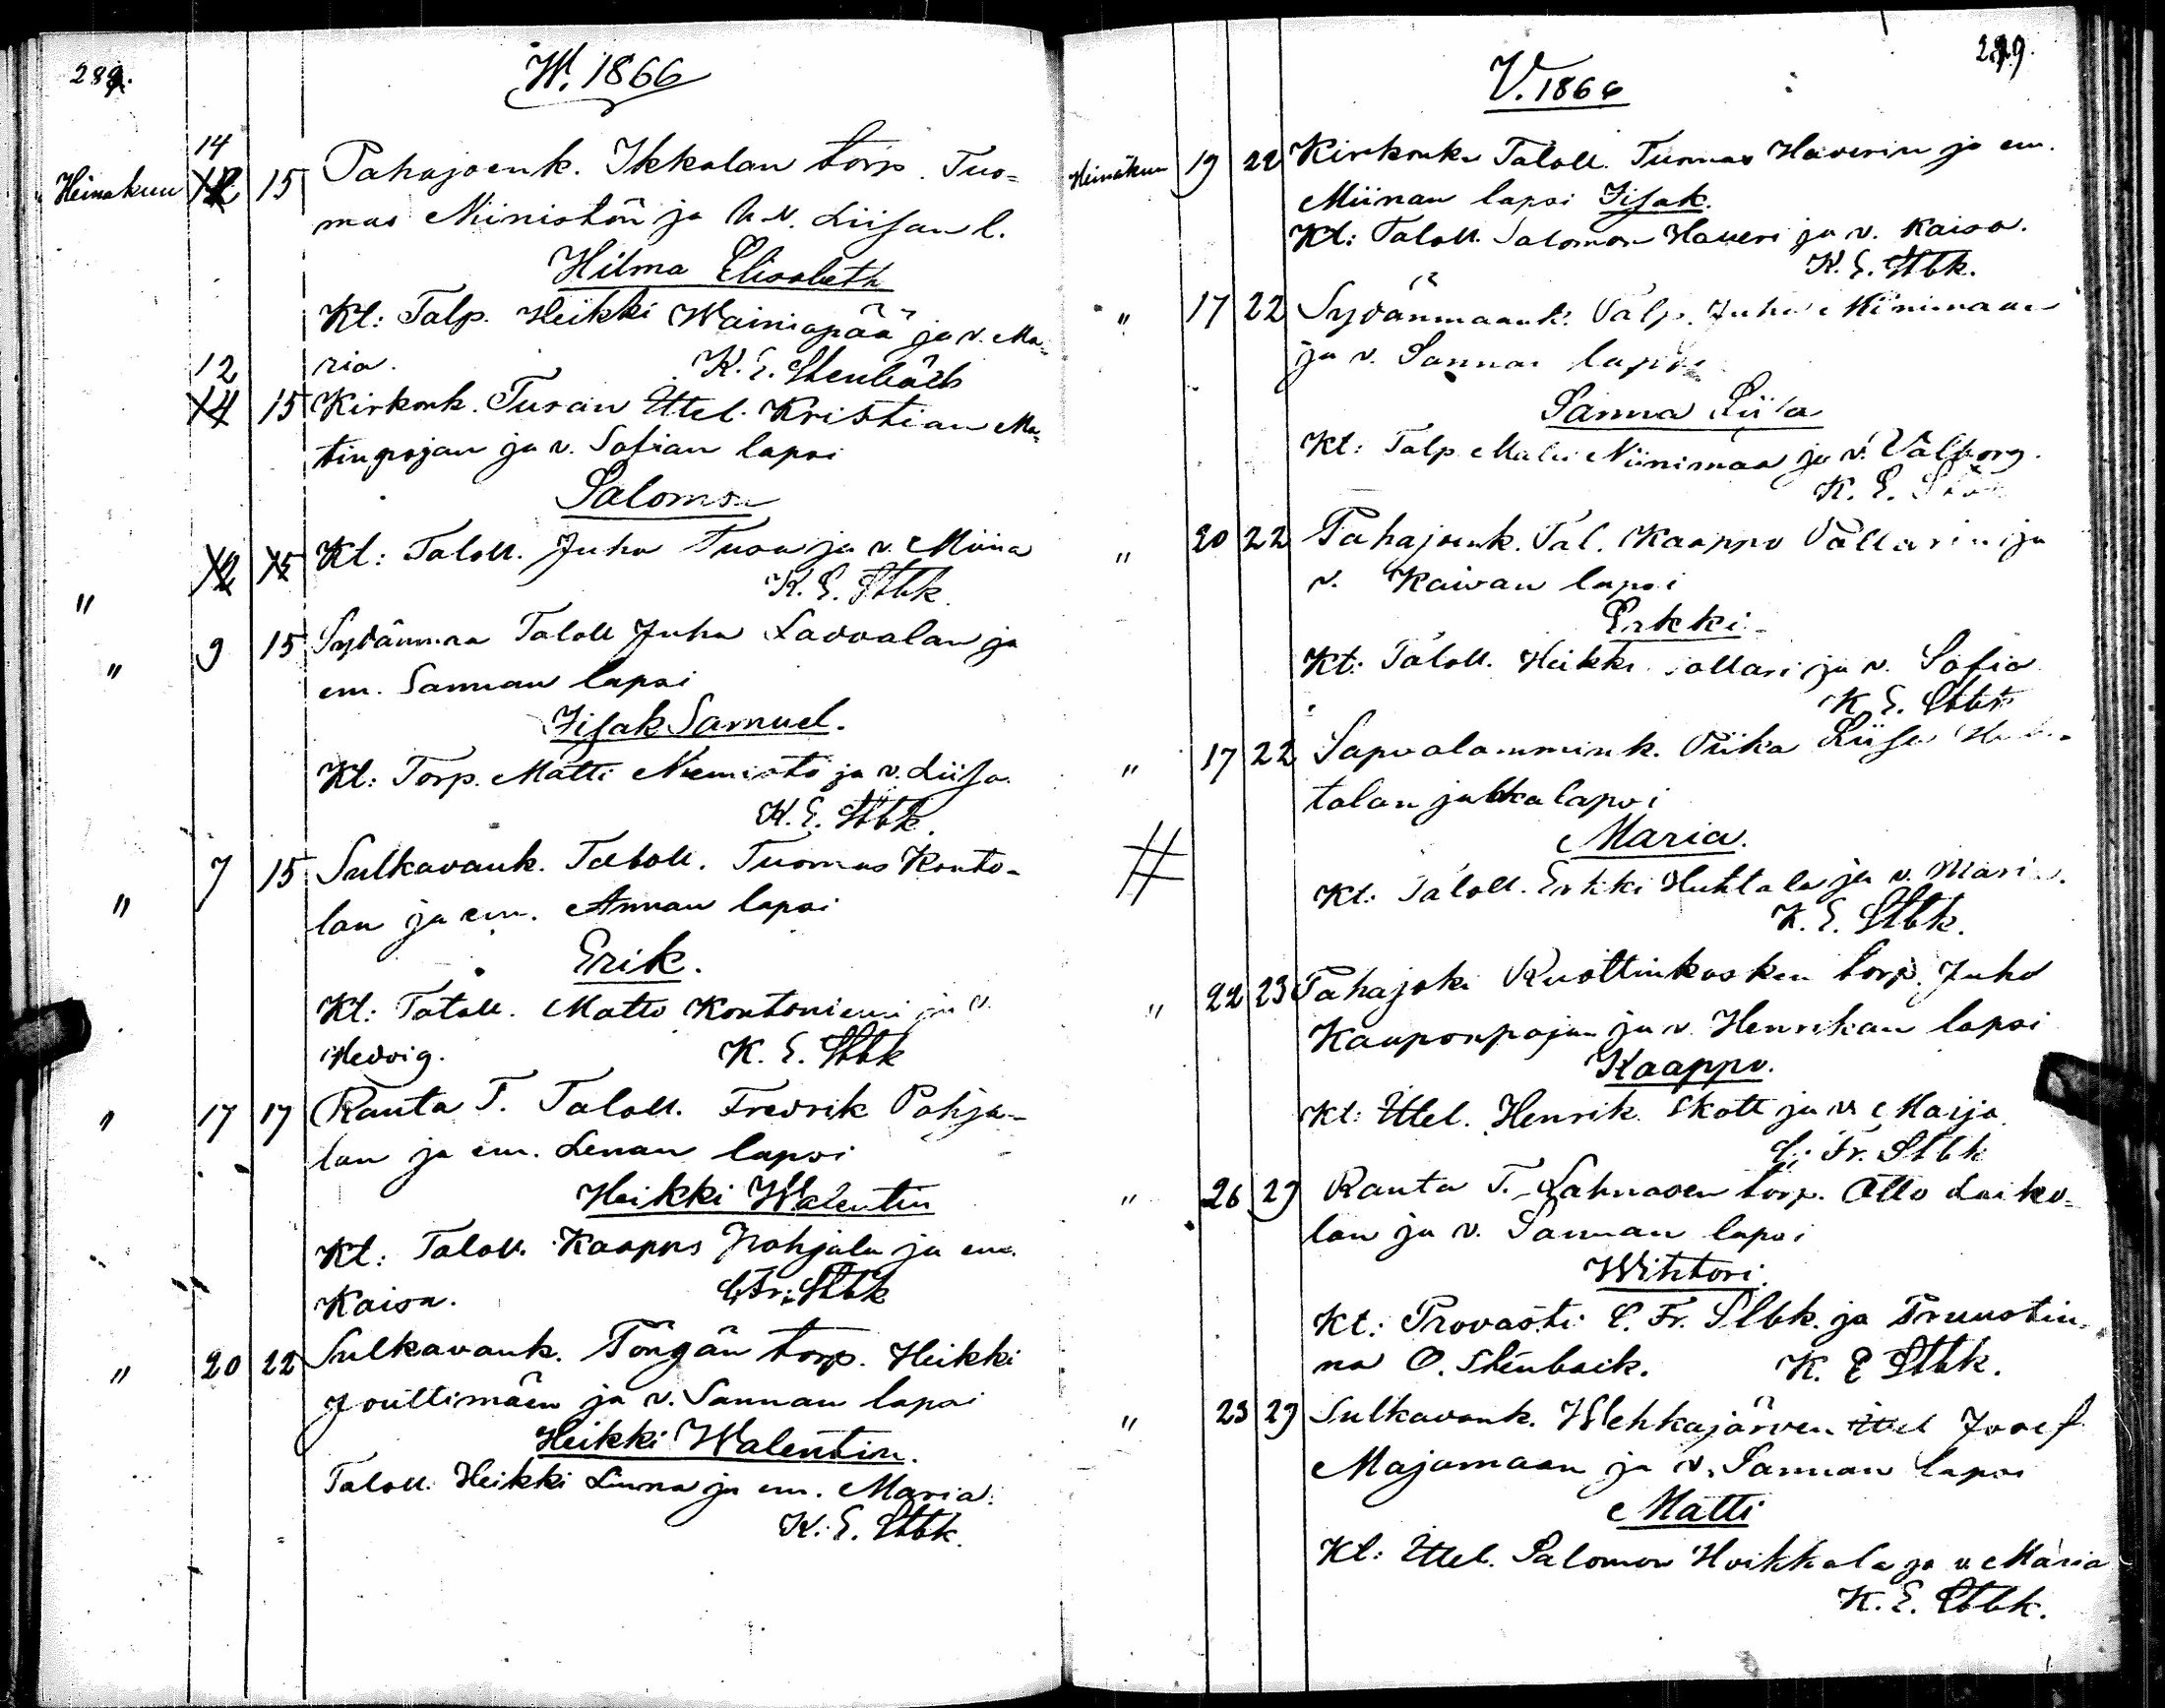 289.
W. 1866
14
Heinäkuu 12 15 Pahajoenk. Ikkalan torp. Tuo=
mas Niinistön ja v. Liisan l.
Hilma Elisabeth
Kt: Talp. Heikki Wainiopää ja v. Ma=
ria. K. E. Stenbäck
12
14 15 Kirkonk. Tusan Ittel. Kristian Ma=
tinpojan ja v. Sofian lapsi
Salomon
12 15 Kt: Taloll. Juha Tusa ja v. Miina
" K. E. Stbk.
" 9 15 Sydänmaa Taloll Juha Ladvalan ja
em. Sannan lapsi
Iisak Samuel.
Kt: Torp. Matti Niemistö ja v. Liisa.
K. E. Stbk.
" 7 15 Sulkavank. Taloll. Tuomas Konto-
lan ja em. Annan lapsi
Erik.
Kt: Taloll. Matts Kontoniemi ja v.
Hedvig. K. E. Stbk
" 17 17 Ranta T. Taloll. Fredrik Pohja-
lan ja em. Lenan lapsi
Heikki Walentin
Kt: Taloll. Kaappo Pohjala ja em.
Kaisa. C. Fr. Stbk
" 20 22 Sulkavank. Töngän torp. Heikki
Jouttimäen ja v. Sannan lapsi
Heikki Walentin.
Taloll. Heikki Linna ja em. Maria.
K. E. Stbk.
V. 1866
Heinäkuu 19 22 Kirkonk. Taloll. Tuomas Haverin ja em.
Miinan lapsi Iisak.
Kt: Taloll. Salomon Haveri ja v. Kaisa.
K. E. Stbk.
" 17 22 Sydänmaank. Talp. Juha Niinimaan
ja v. Sannan lapsi
Sanna Liisa
Kt: Talp. Matti Niinimaa ja v. Valborg.
K. E.
" 20 22 Pahajoenk. Tal. Kaappo Vällarin ja
v. Kaisan lapsi
Erkki
Kt: Taloll. Heikki ja v. Sofia
K. E. Stbk
" 17 22 Sapsalammink. Piika Liisa Huh-
talan jalkalapsi
Maria.
Kt: Taloll. Erkki Huhtala ja v. Maria.
K. E. Stbk.
" 22 23 Pahajoki Ruottinkosken torp. Juho
Kauponpojan ja v. Henrikan lapsi
Kaappo.
Kt: Ittel. Henrik Skott ja v. Maija
C. Fr. Stbk
" 26 29 Ranta T. Lahnasen torp. Otto Laiko-
lan ja v. Sannan lapsi
Wihtori.
Kt: Provasti C. Fr. Stbk. ja Pruustin-
na O. Stenbäck. K. E Stbk.
" 23 29 Sulkavank. Wehkajärven Ittel Josef
Majamaan ja v. Sannan lapsi
Matti
Kt: Ittel. Salomon Hoikkala ja v. Maria
K. E. Stbk.